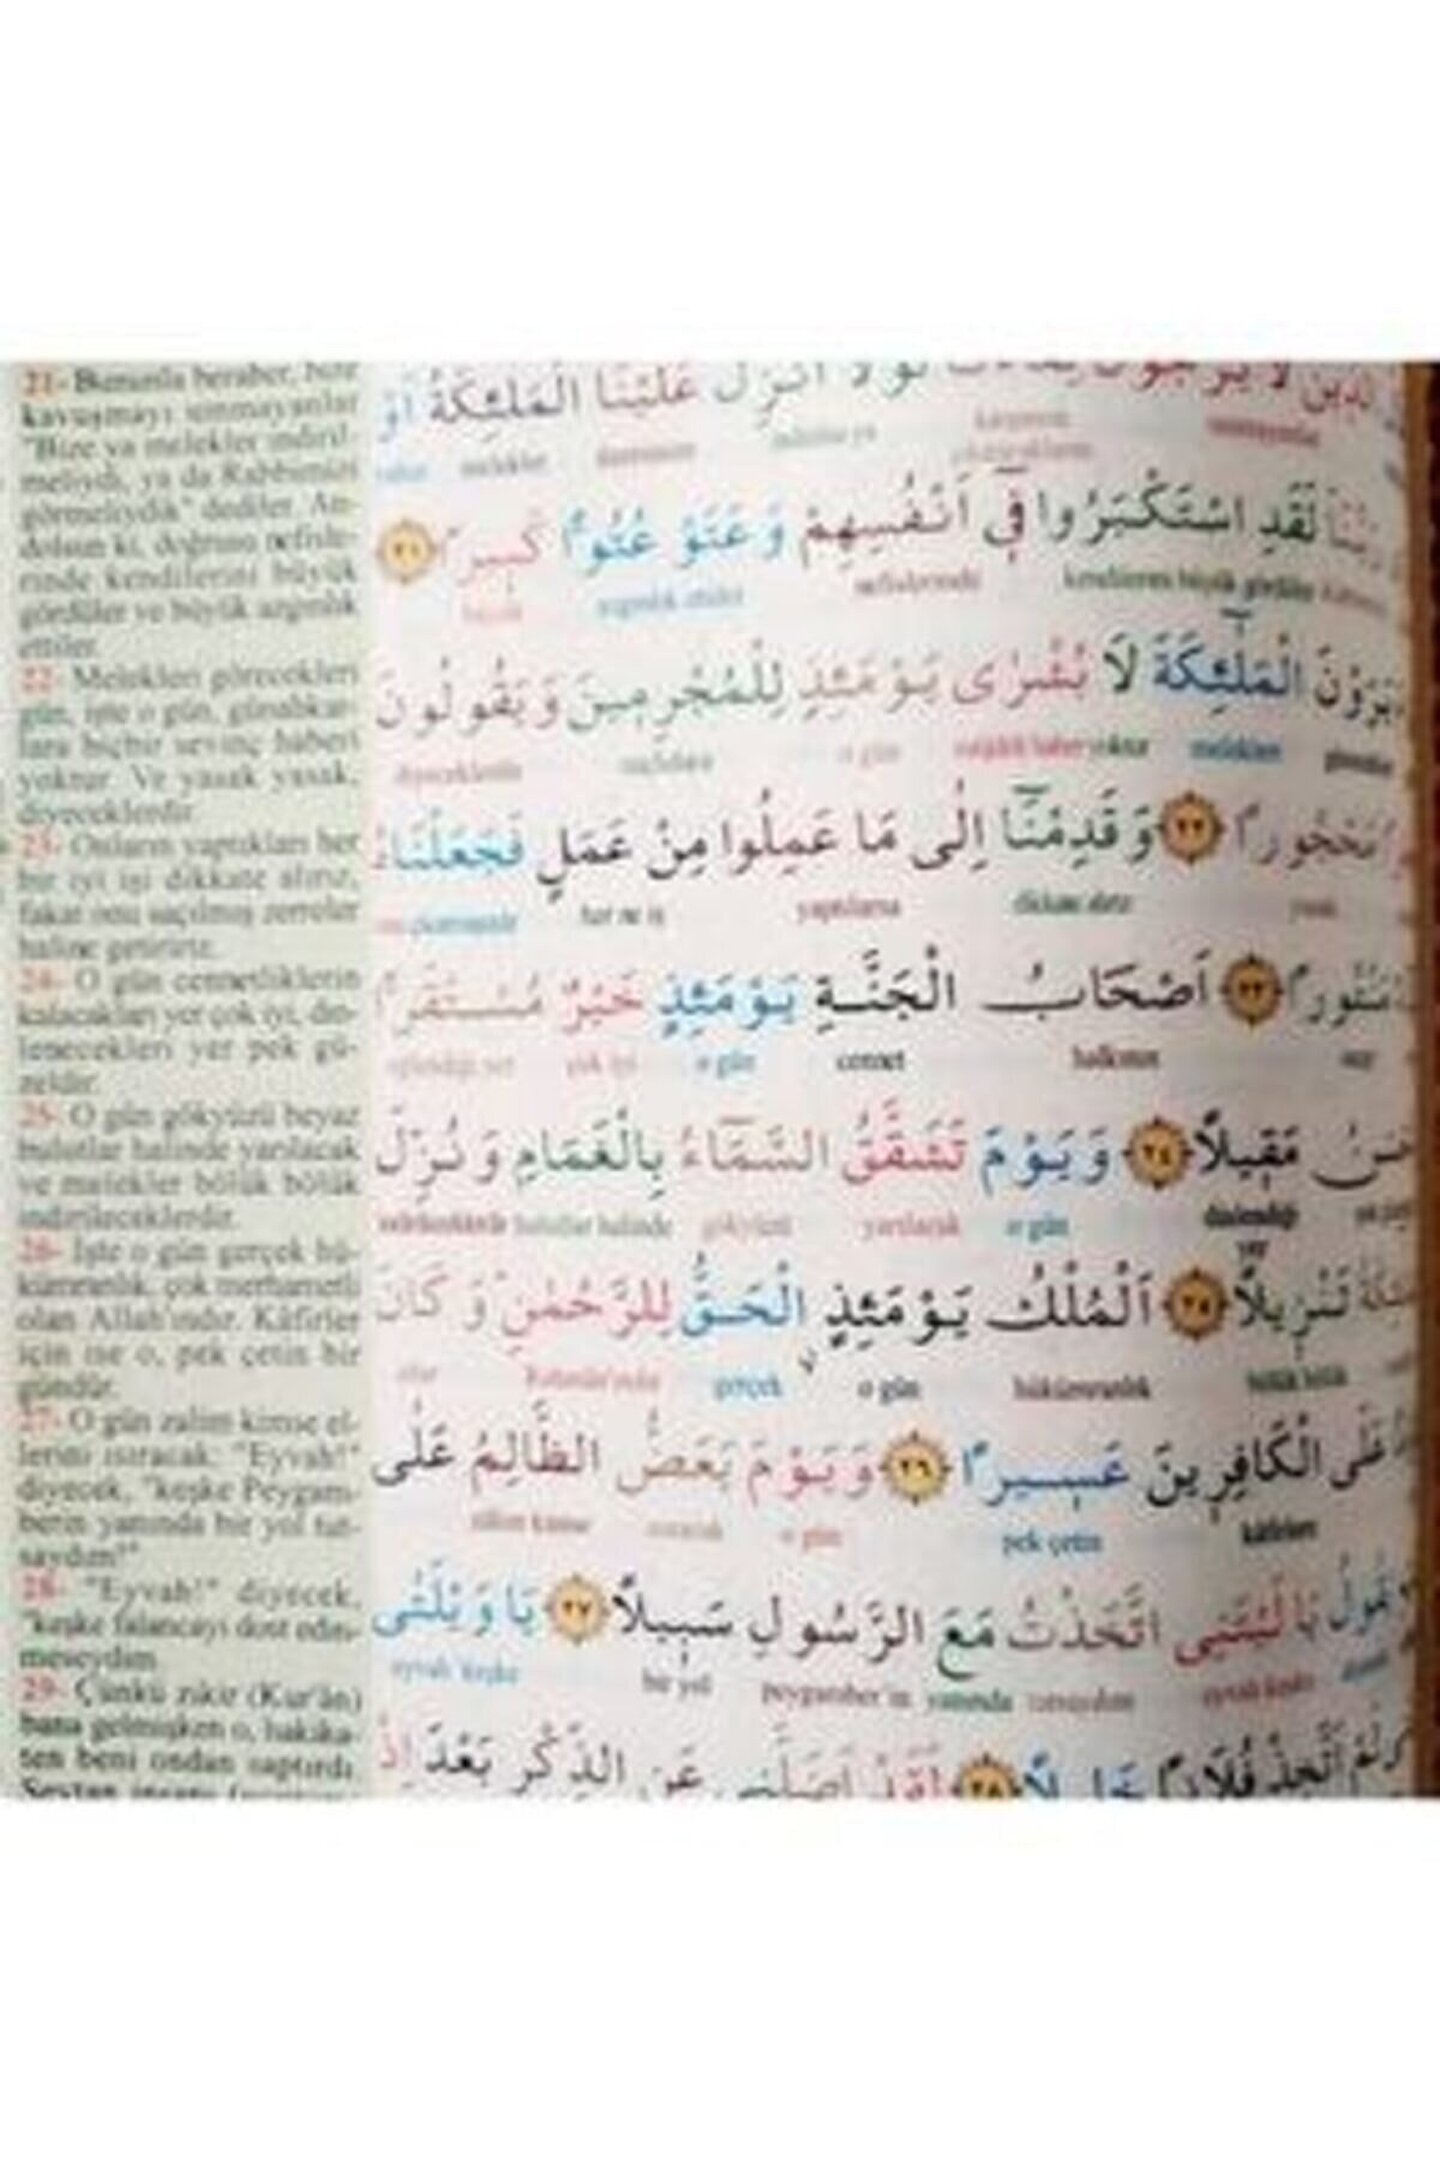 21- Bununla beraber, bize
kavuşmayı ummayanlar
"Bize ya melekler indiril-
meliydi, ya da Rabbimizi
görmeliydik" dediler. An-
dolsun ki, doğrusu nefisle-
rinde kendilerini büyük
gördüler ve büyük azgınlık
ettiler.
22- Melekleri görecekleri
gün, işte o gün, günahkar-
lara hiçbir sevinç haberi
yoktur. Ve yasak yasak,
diyeceklerdir.
23- Onların yaptıkları her
bir iyi işi dikkate alırız,
fakat onu saçılmış zerreler
haline getiririz.
24- O gün cennetliklerin
kalacakları yer çok iyi, din-
lenecekleri yer pek gü-
zeldir.
25- O gün gökyüzü beyaz
bulutlar halinde yarılacak
ve melekler bölük bölük
indirileceklerdir.
26- İşte o gün gerçek hü-
kümranlık, çok merhametli
olan Allah'ındır. Kâfirler
için ise o, pek çetin bir
gündür.
27- O gün zalim kimse el-
lerini ısıracak: "Eyvah!"
diyecek, "keşke Peygam-
berin yanında bir yol tut-
saydım!"
28- "Eyvah!" diyecek,
"keşke falancayı dost edin-
meseydim.
29- Çünkü zikir (Kur'ân)
bana gelmişken o, hakika-
ten beni ondan saptırdı.
عَلَيْنَا الْمَلٰٓئِكَةُ اَوْ
لَقَدِ اسْتَكْبَرُوا فٖٓي اَنْفُسِهِمْ وَعَتَوْ عُتُوًّا كَبٖيرًا ﴿٢١﴾
kendilerini büyük gördüler nefislerinde azgınlık ettiler büyük
يَرَوْنَ الْمَلٰٓئِكَةَ لَا بُشْرٰى يَوْمَئِذٍ لِلْمُجْرِمٖينَ وَيَقُولُونَ
görürler melekleri yoktur o gün diyeceklerdir
مَحْجُورًا ﴿٢٢﴾ وَقَدِمْنَٓا اِلٰى مَا عَمِلُوا مِنْ عَمَلٍ فَجَعَلْنَاهُ
yasak dikkate alırız yaptılarsa her ne iş
مَنْثُورًا ﴿٢٣﴾ اَصْحَابُ الْجَنَّةِ يَوْمَئِذٍ خَيْرٌ مُسْتَقَرًّا
halkının cennet o gün çok iyi
مَقٖيلًا ﴿٢٤﴾ وَيَوْمَ تَشَقَّقُ السَّمَٓاءُ بِالْغَمَامِ وَنُزِّلَ
dinlendiği o gün yarılacak gökyüzü bulutlar halinde
yer
تَنْزٖيلًا ﴿٢٥﴾ اَلْمُلْكُ يَوْمَئِذٍ الْحَقُّ لِلرَّحْمٰنِ وَكَانَ
bölük bölük hükümranlık o gün gerçek
عَلَى الْكَافِرٖينَ عَسٖيرًا ﴿٢٦﴾ وَيَوْمَ يَعَضُّ الظَّالِمُ عَلٰى
kâfirlere pek çetin o gün ısıracak zalim kimse
يَا لَيْتَنِي اتَّخَذْتُ مَعَ الرَّسُولِ سَبٖيلًا ﴿٢٧﴾ يَا وَيْلَتٰى
peygamber'in yanında tutsaydım bir yol eyvah keşke
اَتَّخِذْ فُلَانًا خَلٖيلًا ﴿٢٨﴾ لَقَدْ اَضَلَّنٖي عَنِ الذِّكْرِ بَعْدَ اِذْ